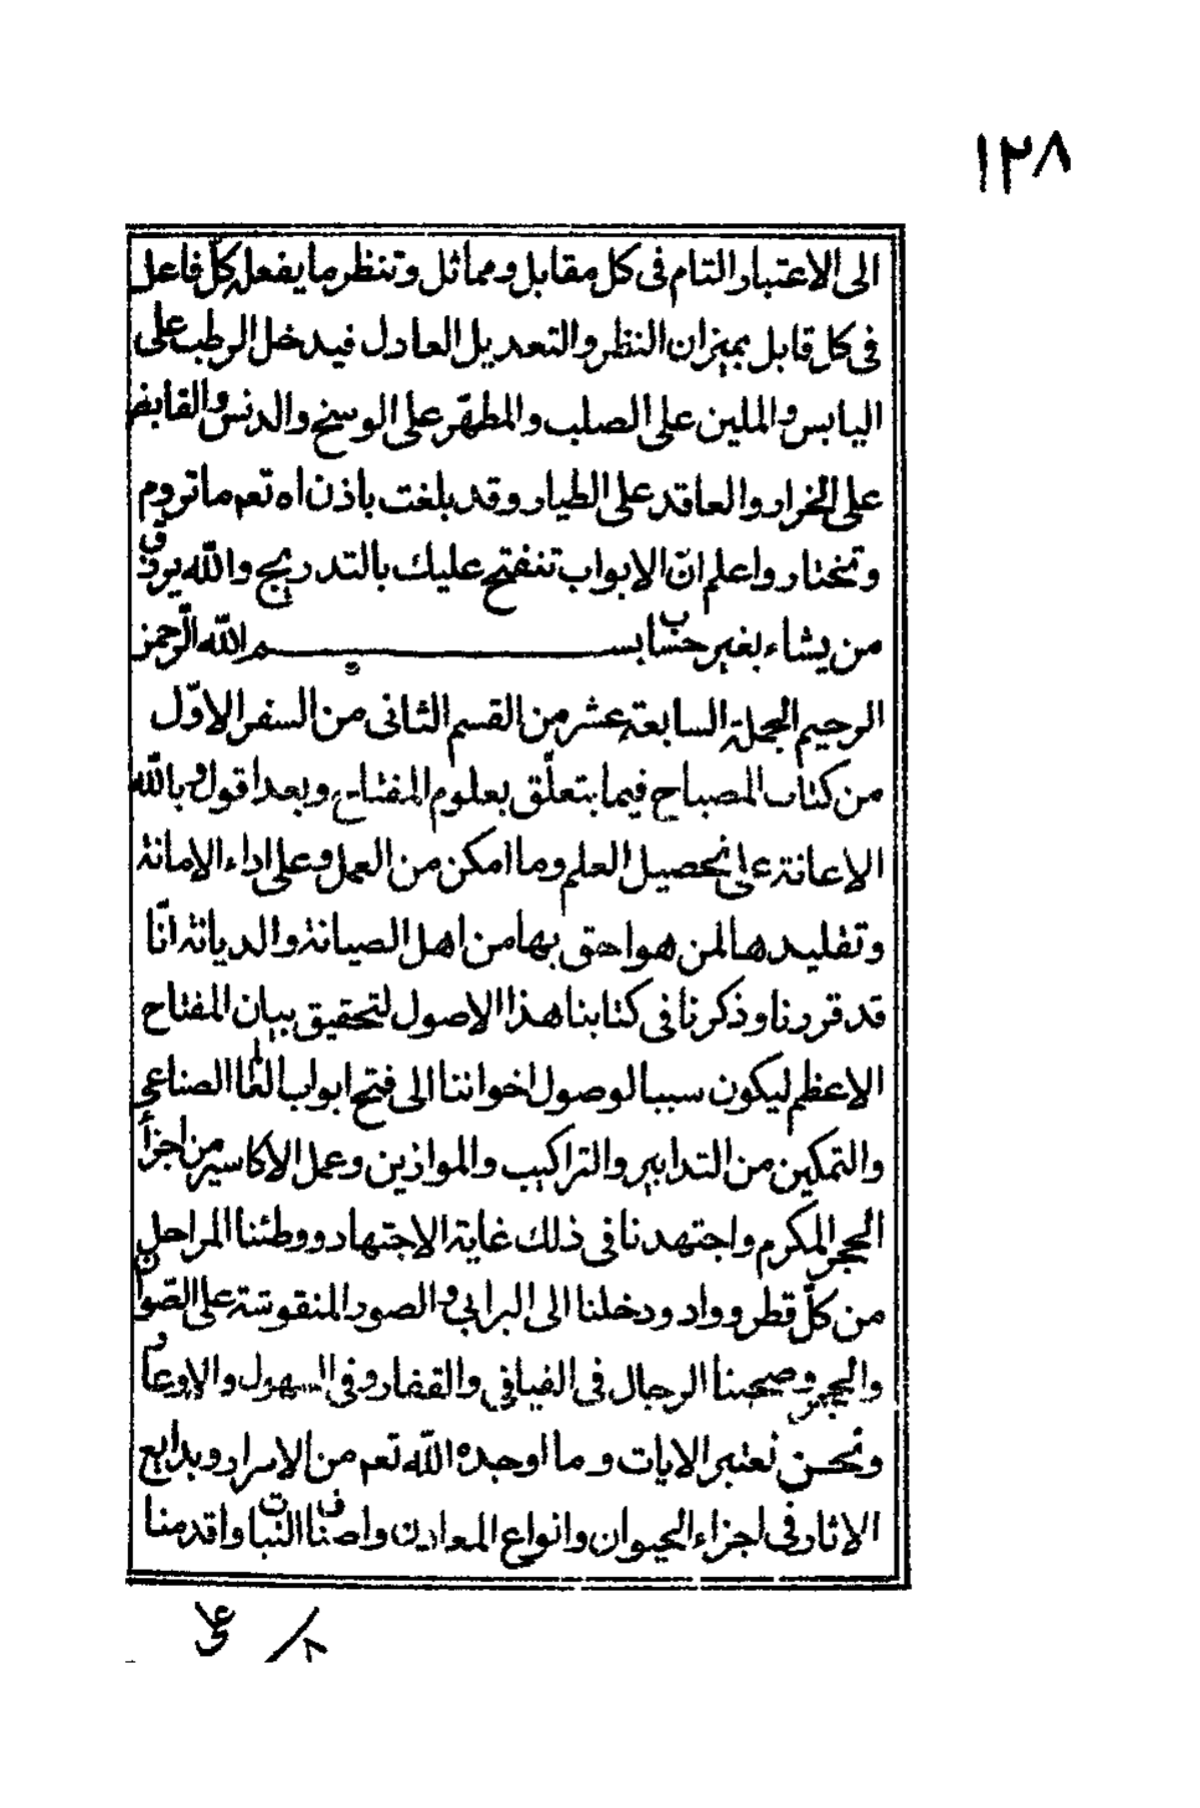 ١٢٨
الى الاعتبار التام فى كل مقابل ومماثل وتنظر ما يفعله كلّ فاعل
فى كل قابل بميزان النظر والتعديل العادل فيدخل الرطب على
اليابس والملين على الصلب والمطهّر على الوسخ والدنس والقابض
على الخرار والعاقد على الطيار وقد بلغت باذن اه تعم ما تروم
وتختار واعلم انّ الابواب تنفتح عليك بالتدريج والله يرزق
من يشاء بغير حساب بسم الله الرّحمن
الرحيم الجملة السابعة عشر من القسم الثانى من السفر الاوّل
من كتاب المصباح فيما يتعلّق بعلوم المفتاح وبعد اقول وبالله
الاعانة على تحصيل العلم وما امكن من العمل وعلى اداء الامانة
وتقليدها لمن هو احق بها من اهل الصيانة والديانة انّا
قد قررنا وذكرنا فى كتابنا هذا الاصول لتحقيق بيان المفتاح
الاعظم ليكون سببا لوصول اخواننا الى فتح ابواب العالم الصناعى
والتمكين من التدابير والتراكيب والموازين وعمل الاكاسير من اجزأ
الحجر المكرم واجتهدنا فى ذلك غاية الاجتهاد ووطئنا المراحل
من كلّ قطر وواد ودخلنا الى البرابى والصور المنقوشة على الصّوان
والحجر وصحبنا الرجال فى الفيافى والقفار وفى السهول والاوعار
ونحن نعتبر الايات وما اوجده الله تعم من الاسرار وبدايع
الاثار فى اجزاء الحيوان وانواع المعادن واصناف النبات واقدمنا
على